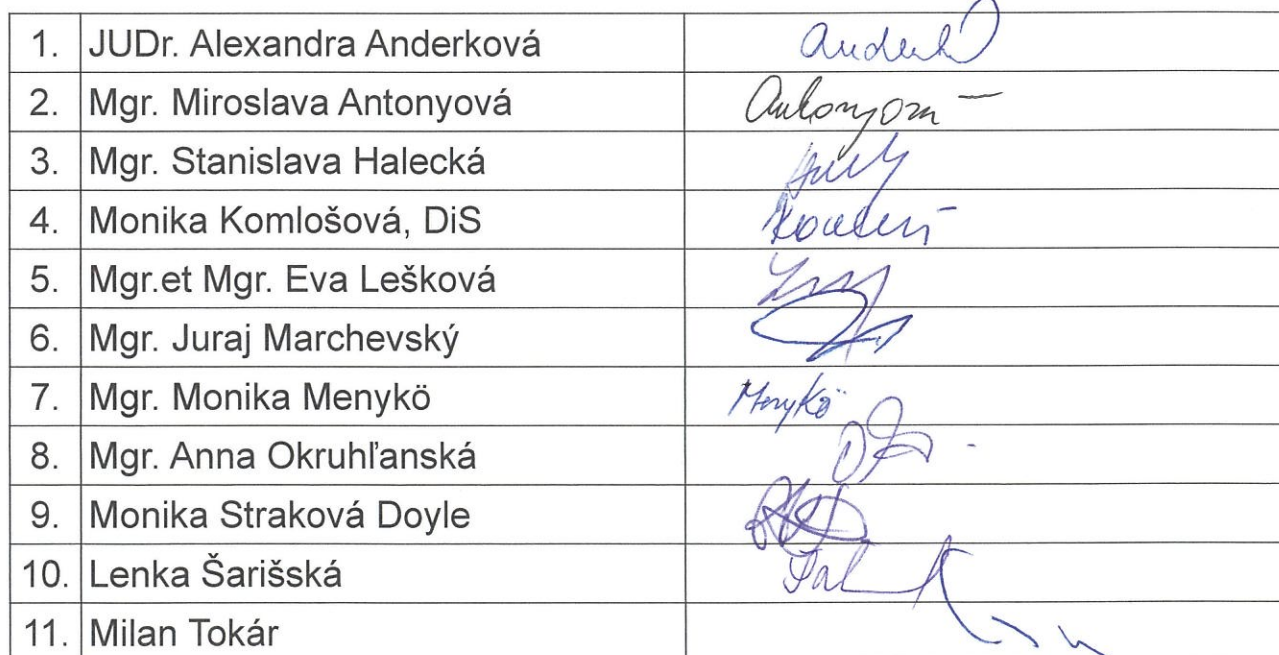 1. JUDr. Alexandra Anderková
2. Mgr. Miroslava Antonyová Antonyová
3. Mgr. Stanislava Halecká
4. Monika Komlošová, DiS
5. Mgr.et Mgr. Eva Lešková
6. Mgr. Juraj Marchevský
7. Mgr. Monika Menykö Menykö
8. Mgr. Anna Okruhľanská
9. Monika Straková Doyle
10. Lenka Šarišská
11. Milan Tokár